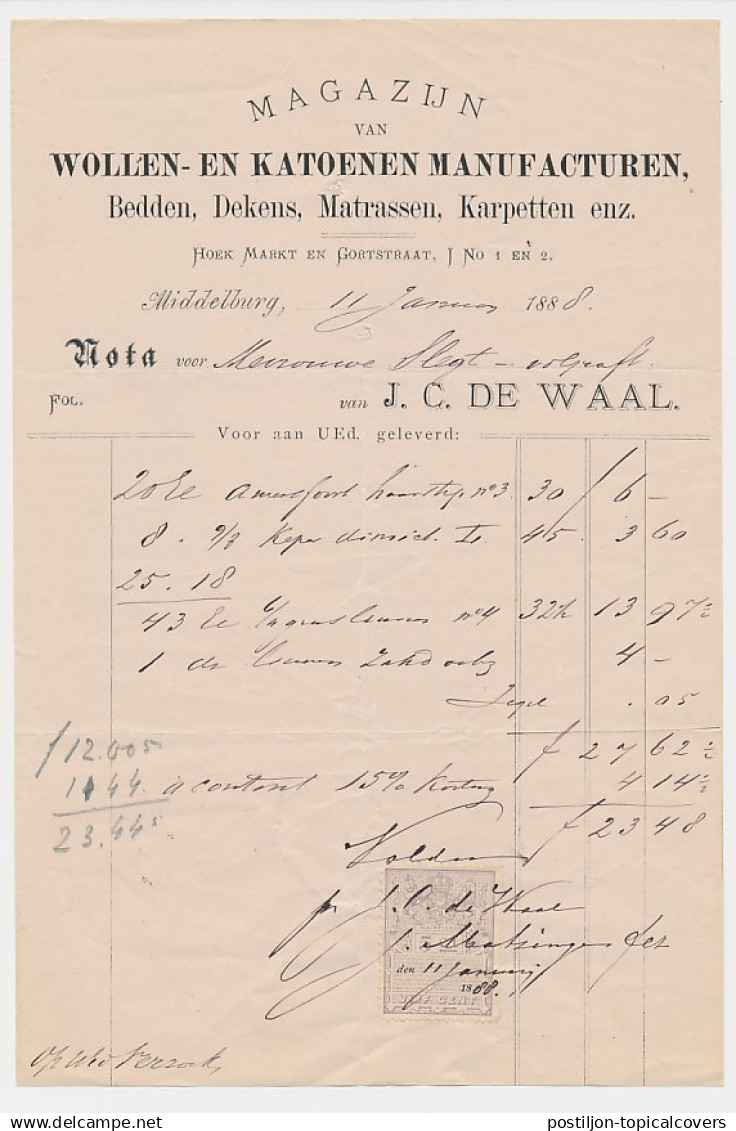 MAGAZIJN
VAN
WOLLEN- EN KATOENEN MANUFACTUREN,
Bedden, Dekens, Matrassen, Karpetten enz.
HOEK MARKT EN GORTSTRAAT, J No 1 EN 2.
Middelburg, 11 Januari 1888.
Nota voor Mevrouwe Slegt
FOL. van J. C. DE WAAL.
Voor aan UEd. geleverd:
20 El Amersfoort n°3. 30 f 6 –
8 . Keper 45. 3 60
25. 18
43 El n°4 32½ 13 97½
1 4 –
Zegel . 05
f 27 62½
f12.005
à contant 15% Korting 4 14½
1144
f 23 48
23.44⁵
Voldaan
pr J. C. de Waal
den 11 Januarij
1888.
VIJF CENT
postiljon-topicalcovers